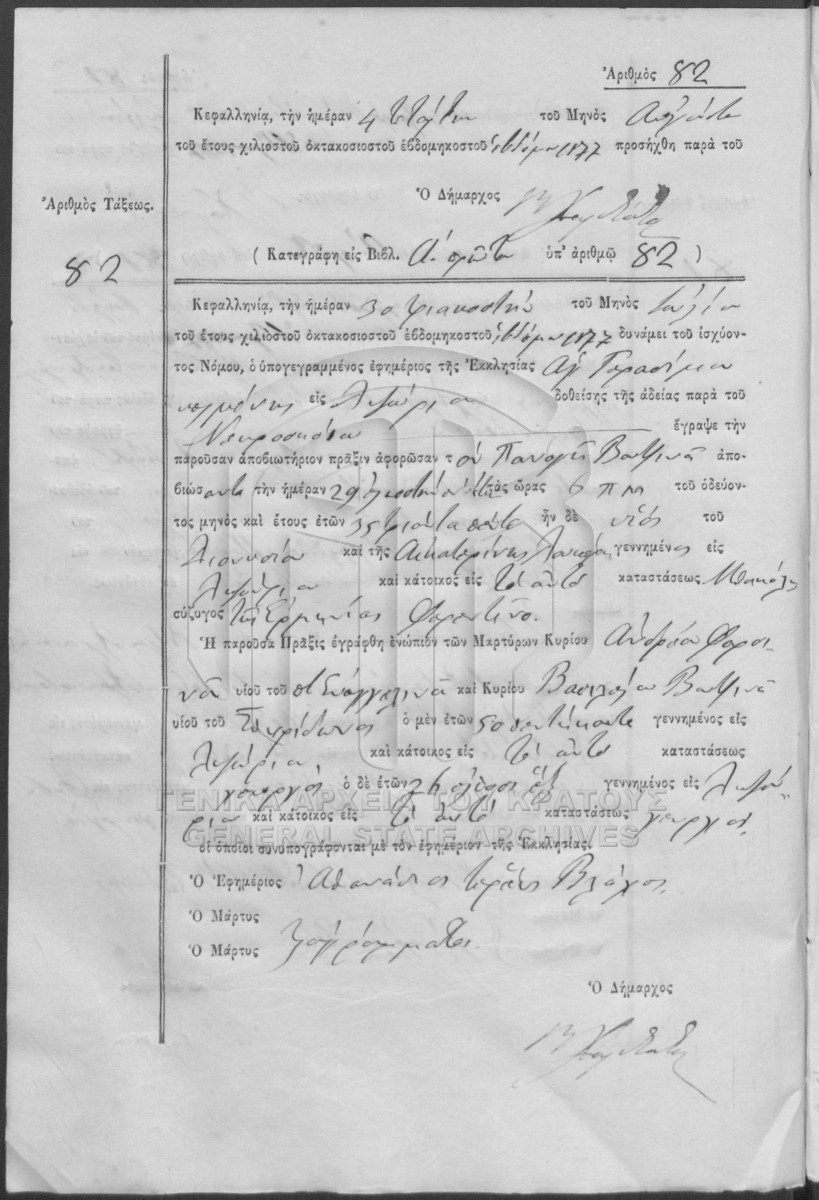 Ἀριθμὸς 82
Κεφαλληνίᾳ, τὴν ἡμέραν 4 τετάρτην τοῦ Μηνὸς Αὐγούστου
τοῦ ἔτους χιλιοστοῦ ὀκτακοσιοστοῦ ἑβδομηκοστοῦ ἑβδόμου 1877 προσήχθη παρὰ τοῦ
Ὁ Δήμαρχος
Ἀριθμὸς Τάξεως.
82
( Κατεγράφη εἰς Βιβλ. Α. πρῶτον ὑπ' ἀριθμῷ 82 )
Κεφαλληνίᾳ, τὴν ἡμέραν 30 τριακοστήν τοῦ Μηνὸς Ἰουλίου
τοῦ ἔτους χιλιοστοῦ ὀκτακοσιοστοῦ ἑβδομηκοστοῦ ἑβδόμου 1877 δυνάμει τοῦ ἰσχύον-
τος Νόμου, ὁ ὑπογεγραμμένος ἐφημέριος τῆς Ἐκκλησίας Ἁγ Γερασίμου
κειμένης εἰς Ληξούριον δοθείσης τῆς ἀδείας παρὰ τοῦ
Νεκροσκόπου ἔγραψε τὴν
παροῦσαν ἀποβιωτήριον πρᾶξιν ἀφορῶσαν τ όν Παναγῆ ἀπο-
βιώσαντα τὴν ἡμέραν 29 τὰς ὥρας 6 π μ τοῦ ὁδεύον-
τος μηνὸς καὶ ἔτους ἐτῶν 35 τριάντα πέντε ἦν δὲ υἱός τοῦ
Διονυσίου καὶ τῆς Αἰκατερίνης γεννημένος εἰς
Ληξούριον καὶ κάτοικος εἰς τὸ αὐτό καταστάσεως
σύζυγος τῆς
Ἡ παροῦσα Πρᾶξις ἐγράφθη ἐνώπιον τῶν Μαρτύρων Κυρίου Ἀνδρέου
υἱοῦ τοῦ καὶ Κυρίου Βασιλείου
υἱοῦ τοῦ Σπυρίδωνος ὁ μὲν ἐτῶν 50 πεντήκοντα γεννημένος εἰς
Ληξούριον καὶ κάτοικος εἰς τὸ αὐτό καταστάσεως
γεωργός ὁ δὲ ἐτῶν 26 εἴκοσι ἕξ γεννημένος εἰς Ληξού-
ριον καὶ κάτοικος εἰς τὸ αὐτό καταστάσεως γεωργός
οἱ ὁποῖοι συνυπογράφονται μὲ τὸν ἐφημέριον τῆς Ἐκκλησίας.
Ὁ Ἐφημέριος Ἀθανάσιος ἱερεὺς Βλάχος
Ὁ Μάρτυς
Ὁ Μάρτυς ἀγράμματοι
Ὁ Δήμαρχος
ΓΕΝΙΚΑ ΑΡΧΕΙΑ ΤΟΥ ΚΡΑΤΟΥΣ
GENERAL STATE ARCHIVES